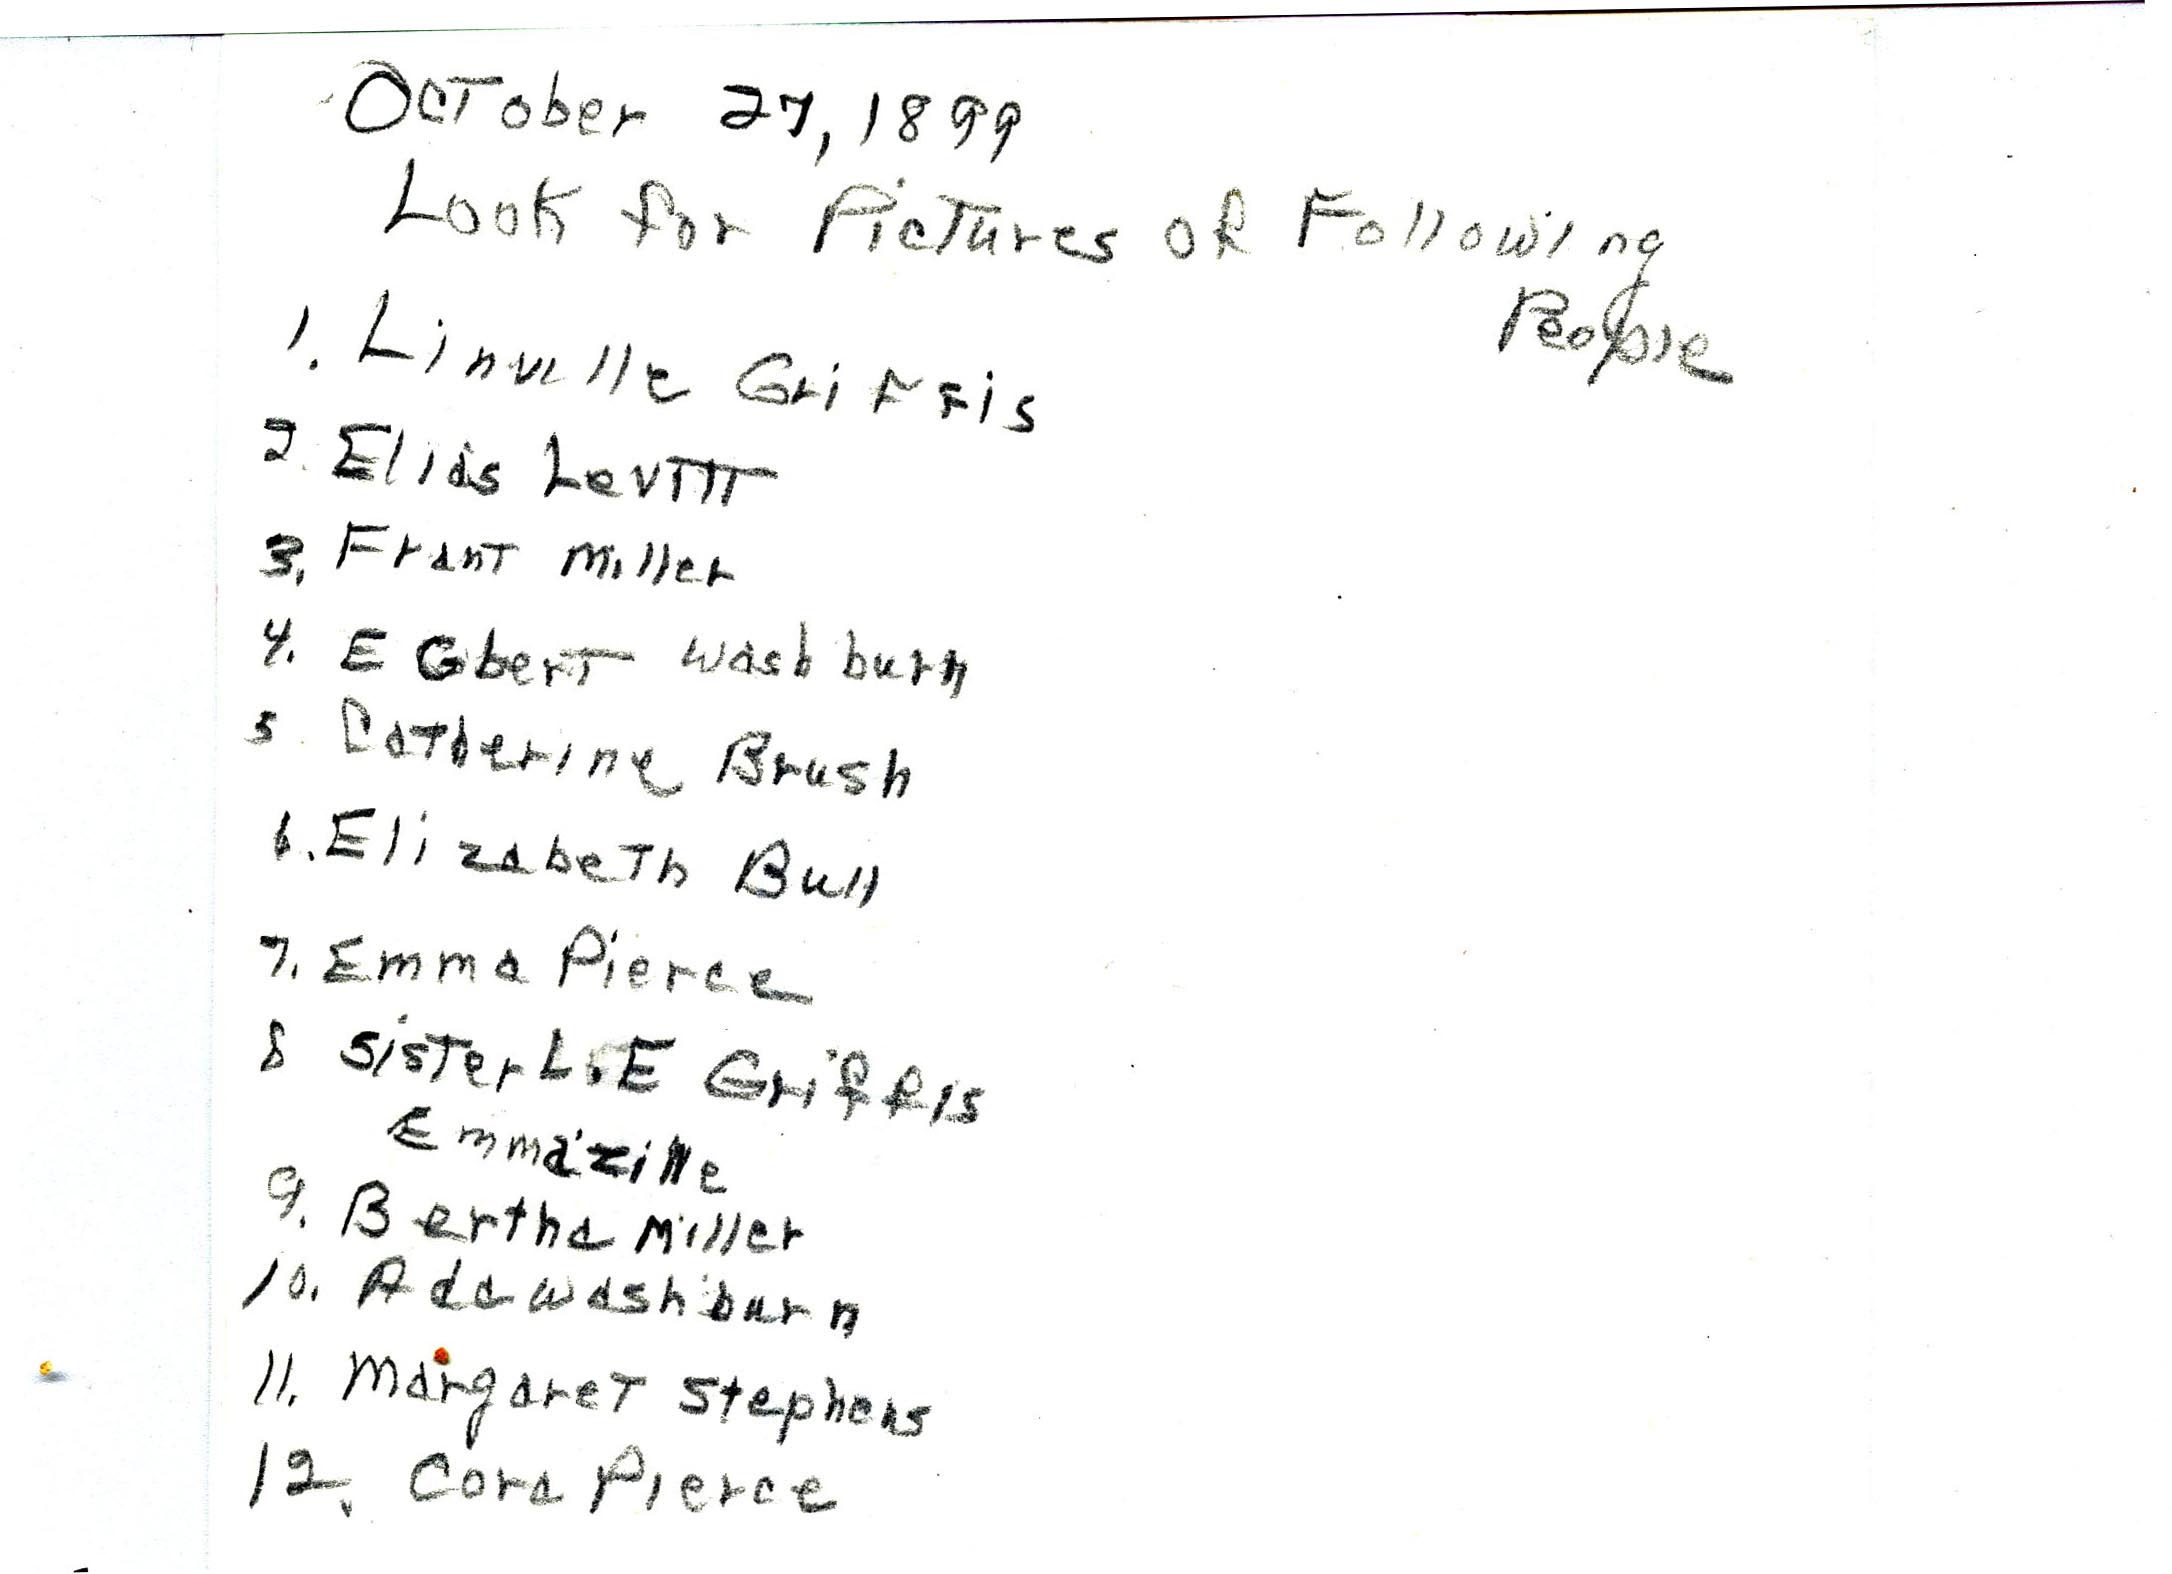 October 27, 1899
Look for Pictures of Following
People
1. Linville Griffis
2. Elias Levitt
3. Frant Miller
4. EGbert Washburn
5 Catherine Brush
6. Elizabeth Bull
7. Emma Pierce
8 Sister L.E Griffis
9. Bertha Miller
10. Ada Washburn
11. Margaret Stephens
12. Cora Pierce